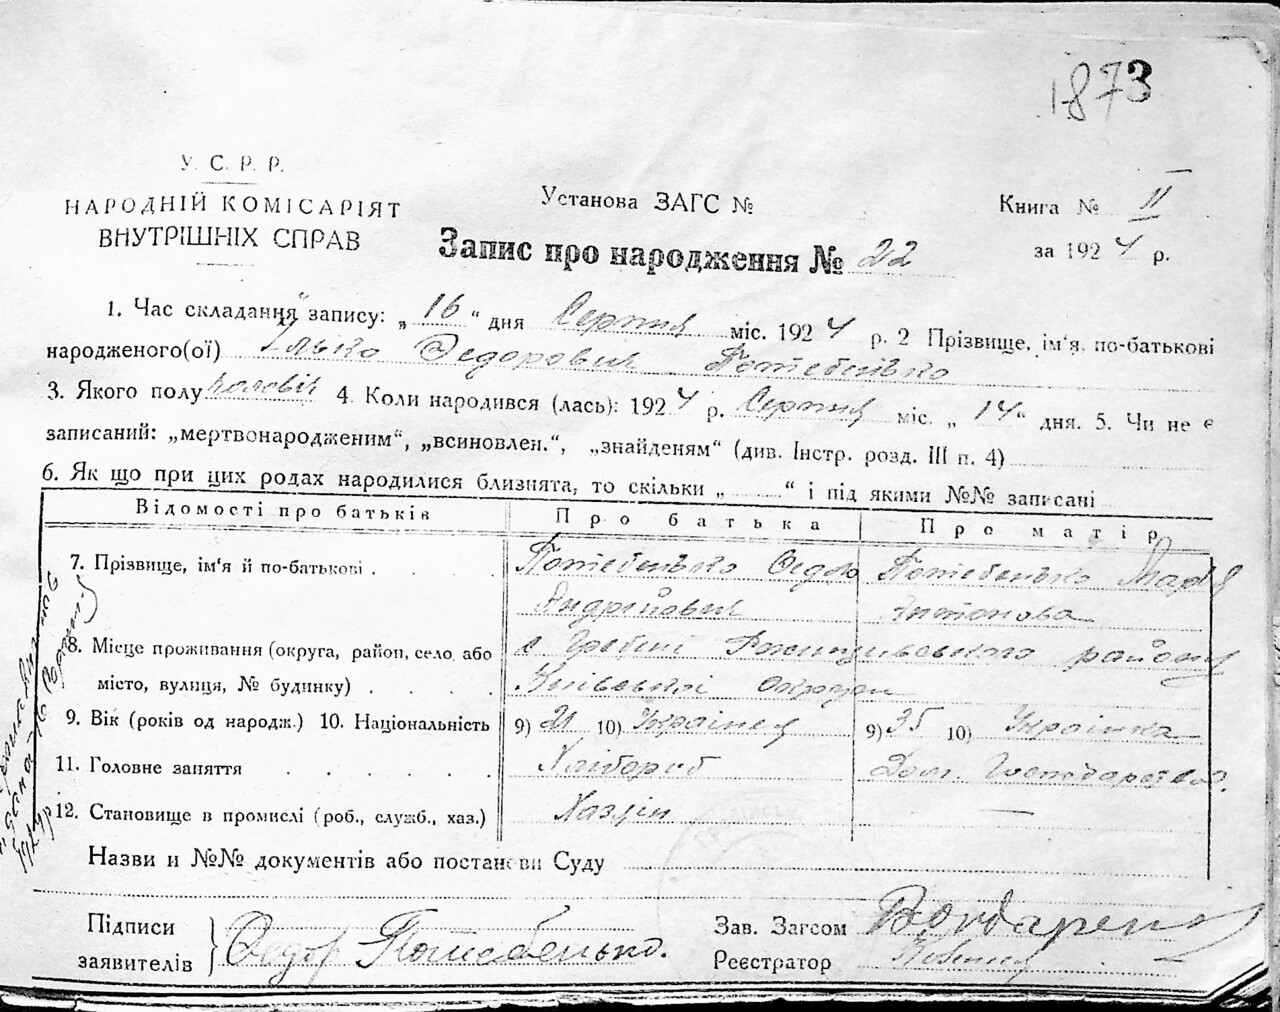 1873
У. С. Р. Р.
НАРОДНІЙ КОМІСАРІЯТ
ВНУТРІШНІХ СПРАВ
Установа ЗАГС №
Книга № II
за 1924 р.
Запис про народження № 22
1. Час складання запису: „ 16 “ дня Серпня міс. 1924 р. 2 Прізвище, ім'я, по-батькові
народженого(ої) Ілько Федорович Потебенько
3. Якого полу чоловіч 4. Коли народився (лась): 1924 р. Серпня міс. „ 14 “ дня. 5. Чи не є
записаний: „мертвонародженим“, „всиновлен.“, „знайденям“ (див. Інстр. розд. III п. 4)
6. Як що при цих родах народилися близнята, то скільки „ “ і під якими №№ записані
Відомості про батьків Про батька Про матір
7. Прізвище, ім'я й по-батькові . . . . Потебенько Федор Потебенько Марія
Андрійович Антонова
8. Місце проживання (округа, район, село або с Гребені Ржищівського району
місто, вулиця, № будинку) . . . . Київської округи
9. Вік (років од народж.) 10. Національність 9) 21 10) Українец 9) 35 10) Українка
11. Головне заняття . . . . . Хлібороб Дом. Господарство.
12. Становище в промислі (роб., служб., хаз.) Хазяїн —
Назви и №№ документів або постанови Суду
Підписи
заявителів
Федор Потебенько.
Зав. Загсом Бондарен
Реєстратор